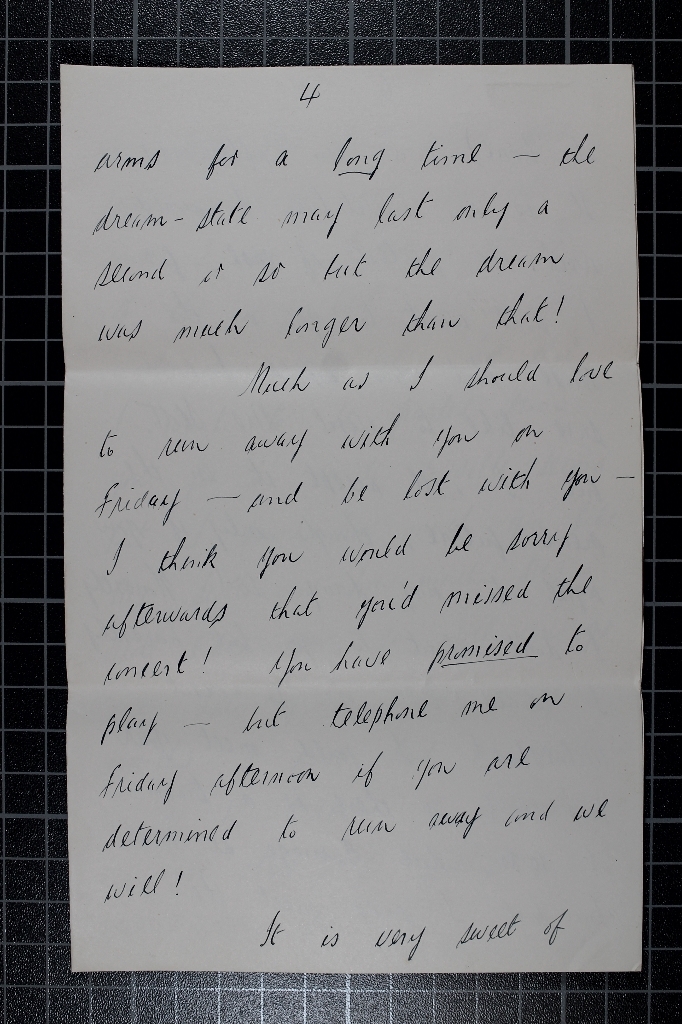 4
arms for a long time — the
dream-state may last only a
second or so but the dream
was much longer than that!
Much as I should love
to run away with you on
Friday — and be lost with you —
I think you would be sorry
afterwards that you'd missed the
concert! You have promised to
play — but telephone me on
Friday afternoon if you are
determined to run away and we
will!
It is very sweet of